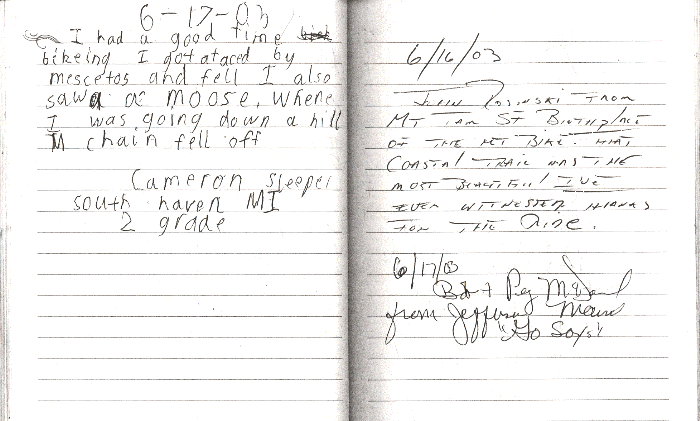 6-17-03
I had a good time
bikeing I got ataced by
mescetos and fell I also
sawa a moose, Where
I was going down a hill
M chain fell off
Cameron Sleeper
south haven MI
2 grade
6/16/03
John Rosinski From
MT TAM ST Birthplace
OF THE MT BIKE. THAT
Coastal TRAIL WAS THE
MOST BEAUTIFul I'VE
EVER WITNESSED THANKS
FOR THE Ride.
6/17/03
Bob + Peg
from Jefferson Maine
"Go Soxs"